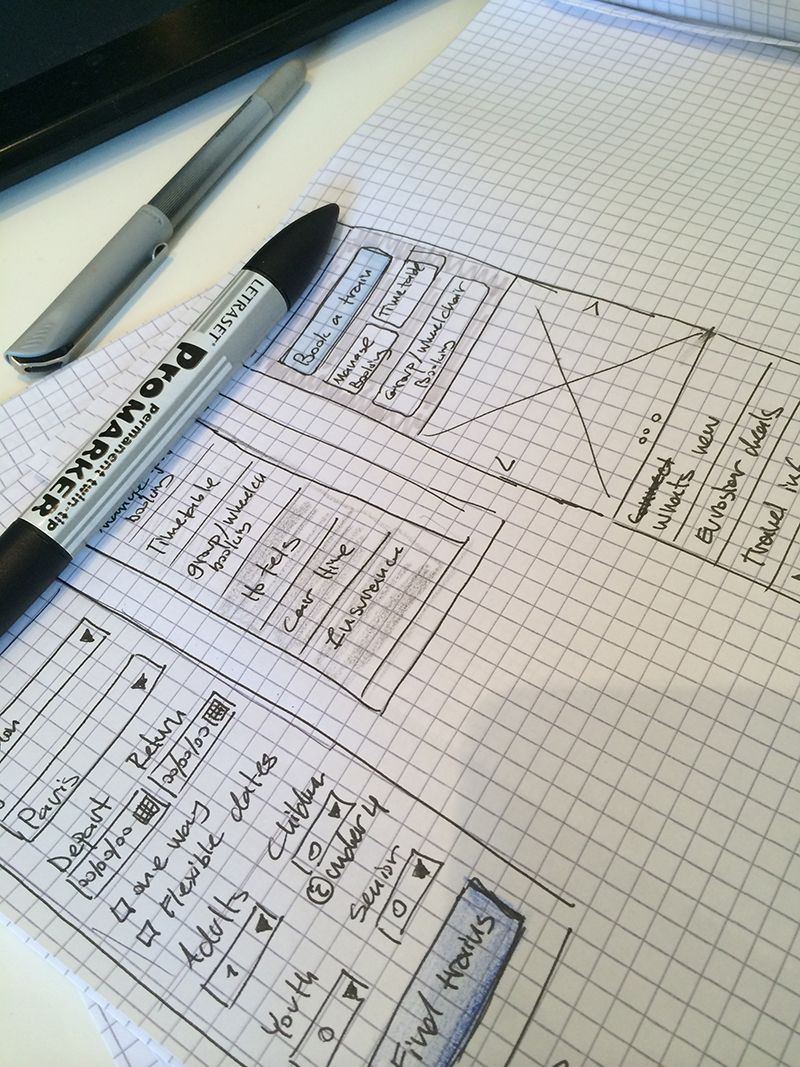 LETRASET
PROMARKER
permanent twin-tip
Book a train
Timetable
Manage
Booking
Group/wheelchair
Booking
What's new
Eurostar deals
Travel
booking
Timetable
group/wheelch
booking
Hotels
Car Hire
Insurance
Paris
Depart
Return
00/00/00
00/00/00
one way
Flexible dates
Adults
1
Children
0
under 4
Youth
0
Senior
0
Find trains